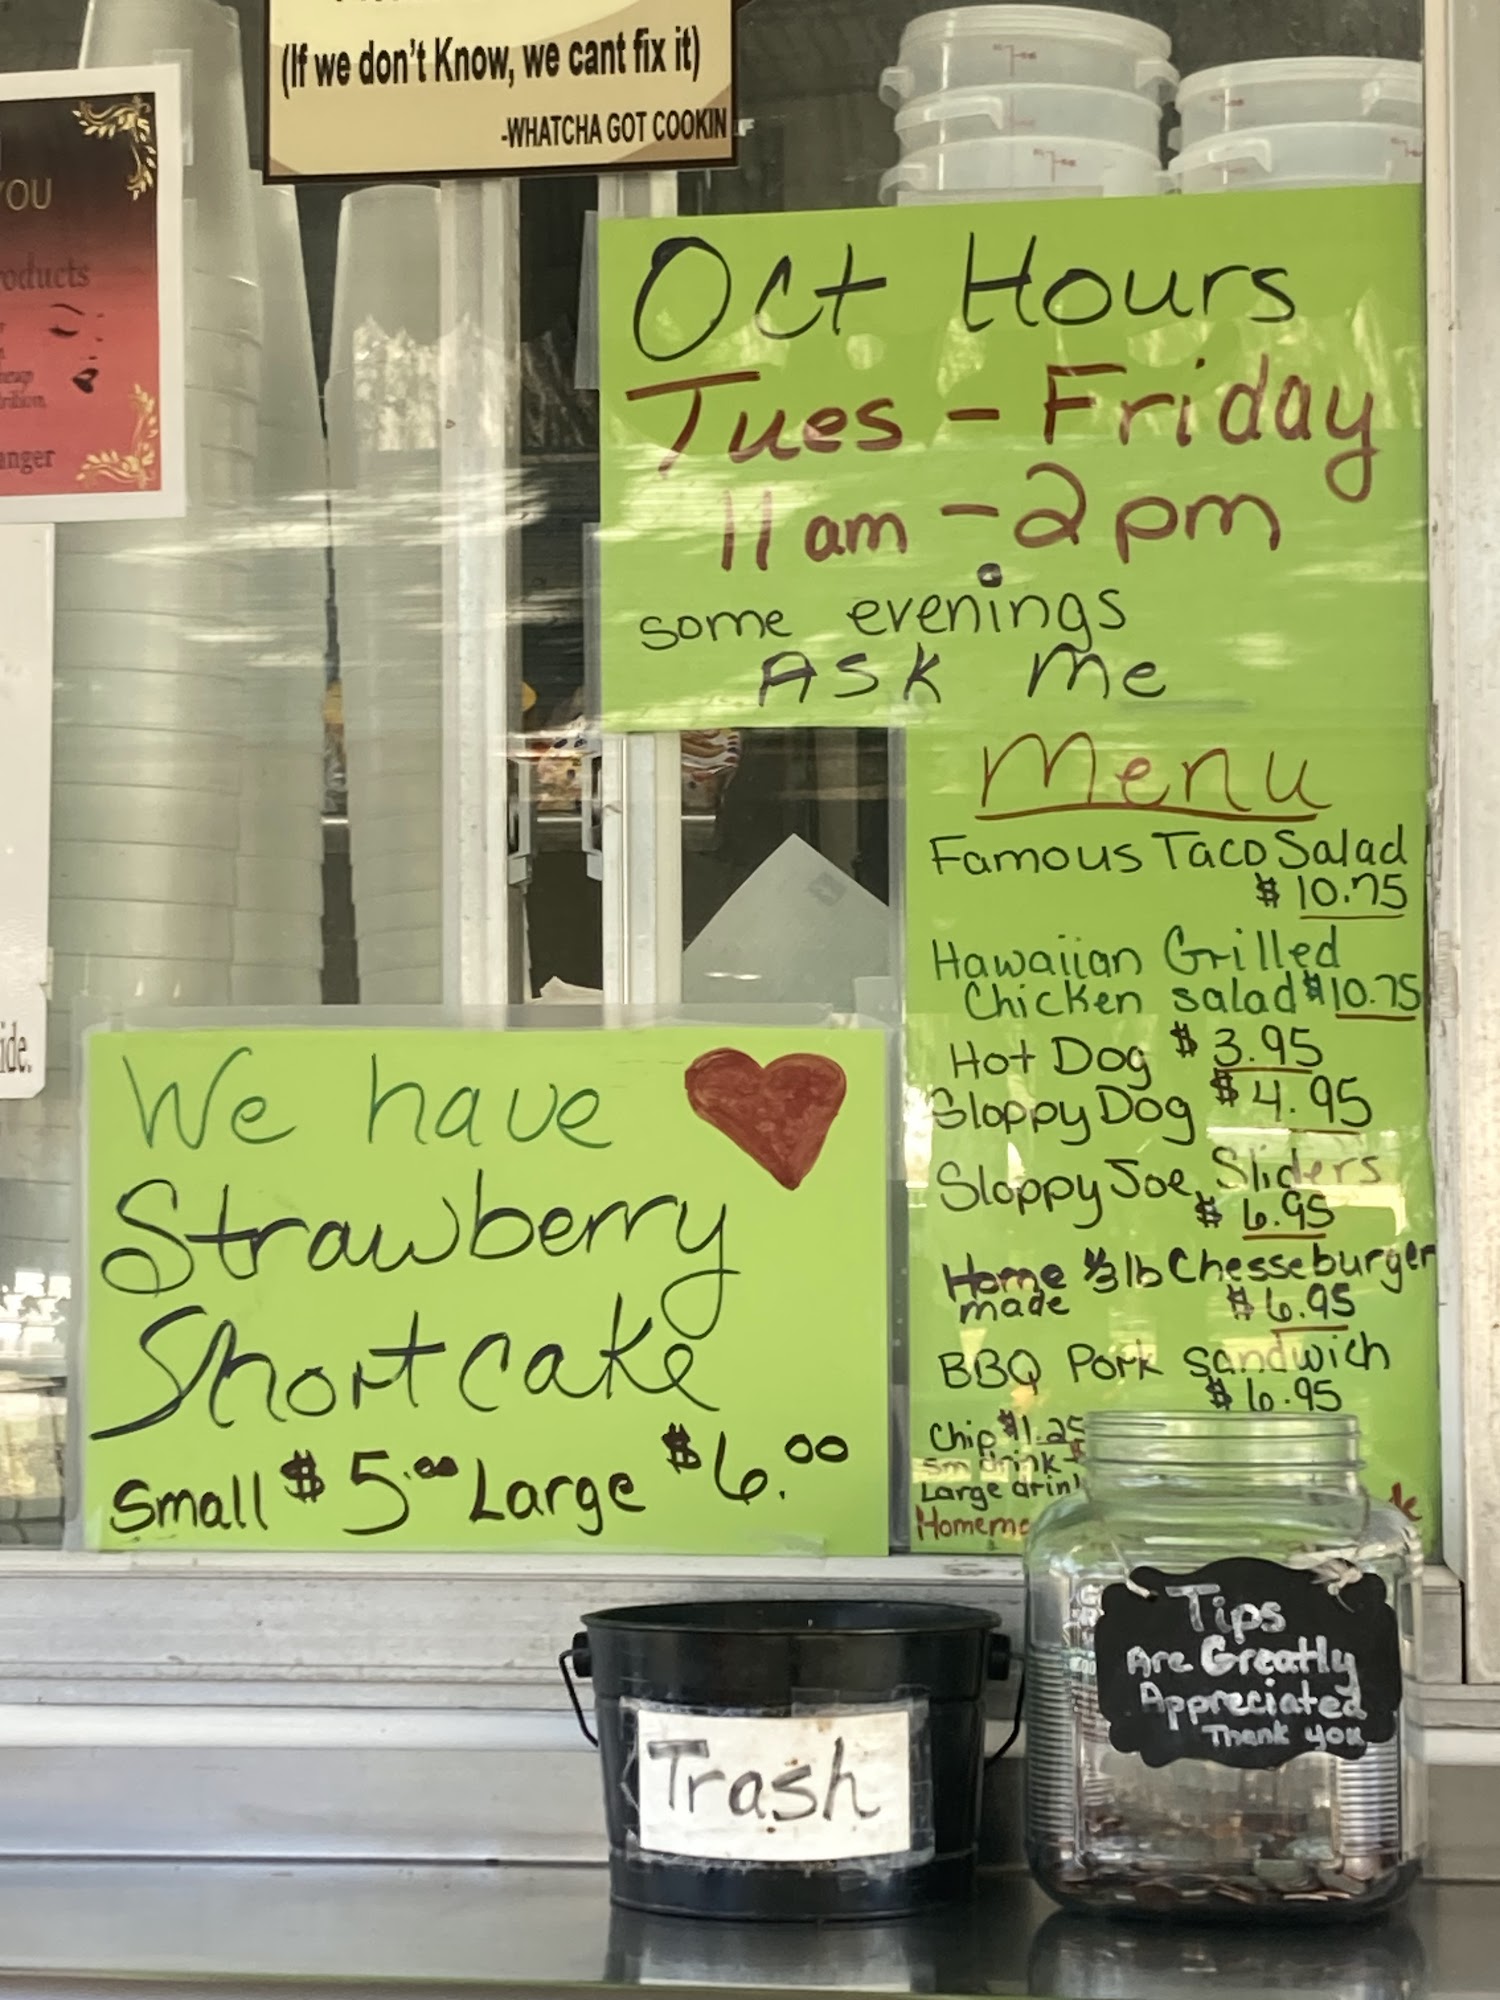 (If we don't Know, we cant fix it)
-WHATCHA GOT COOKIN
YOU
anger
ide.
Oct Hours
Tues - Friday
11 am - 2 pm
some evenings
ASK me
Menu
Famous Taco Salad
$ 10.75
Hawaiian Grilled
Chicken salad $10.75
Hot Dog $ 3.95
Sloppy Dog $ 4.95
Sloppy Joe Sliders
$ 6.95
Home 1/3 lb Chesseburger
made $ 6.95
BBQ Pork Sandwich
$ 6.95
Chip $1.25
Sm drink
Large drin
Homema
We have
Strawberry
Shortcake
Small $ 5.00 Large $ 6.00
Tips
Are Greatly
Appreciated
Thank you
Trash